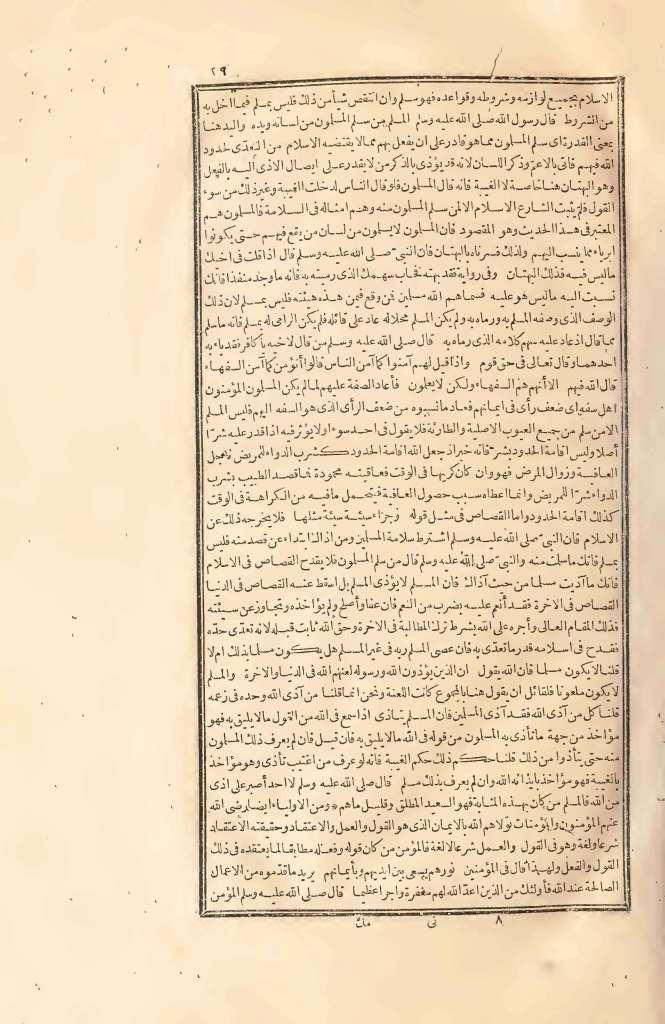 ٢٩
الاسلام بجميع لوازمه وشروطه وقواعده فهو مسلم وان انتقص شيأ من ذلك فليس بمسلم فيما اخل به
من الشروط قال رسول الله صلى الله عليه وسلم المسلم من سلم المسلمون من لسانه ويده واليد هنا
بمعنى القدرة أى سلم المسلمون مما هو قادر على ان يفعل بهم مما لا يقتضيه الاسلام من التعدّى لحدود
الله فيهم فاتى بالاعم وذكر اللسان لانه قد يؤذى بالذكر من لا يقدر على ايصال الاذى اليه بالفعل
وهو البهتان هنا خاصة لا الغيبة فانه قال المسلمون فلو قال الناس لدخلت الغيبة وغير ذلك من سوء
القول فلم يثبت الشارع الاسلام الا لمن سلم المسلمون منه وهم امثاله فى السلامة فالمسلمون هم
المعتبر فى هذا الحديث وهو المقصود فان المسلمون لا يسلمون من لسان من يقع فيهم حتى يكونوا
أبرياء مما ينسب اليهم ولذلك فسرناه بالبهتان فان النبى صلى الله عليه وسلم قال اذا قلت فى اخيك
ما ليس فيه فذلك البهتان وفى رواية فقد بهته فخاب سهمك الذى رميته به فانه ما وجد منفذا فانك
نسبت اليه ما ليس هو عليه فسماهم الله مسلمين فمن وقع فيمن هذه هيئته فليس بمسلم لان ذلك
الوصف الذى وصفه المسلم به ورماه به ولم يكن المسلم محلا له عاد على قائله فلم يكن الرامى له بمسلم فانه ما سلم
مما قال اذ عاد عليه سهم كلامه الذى رماه به قال صلى الله عليه وسلم من قال لاخيه يا كافر فقد باء به
احدهما وقال تعالى فى حق قوم واذا قيل لهم آمنوا كما آمن الناس قالوا أنؤمن كما آمن السفهاء
قال الله فيهم الا انهم هم السفهاء ولكن لا يعلمون فأعاد الصفة عليهم لما لم يكن المسلمون المؤمنون
اهل سفه أى ضعف رأى فى ايمانهم فعاد ما نسبوه من ضعف الرأى الذى هو السفه اليهم فليس المسلم
الا من سلم من جميع العيوب الاصلية والطارئة فلا يقول فى احد سوء او لا يؤثر فيه اذا قدر عليه شرّا
أصلا وليس اقامة الحدود بشر فانه خير اذ جعل الله اقامة الحدود كشرب الدواء للمريض لاجل
العافية وزوال المرض فهو وان كان كريها فى الوقت فعاقبته محمودة فما قصد الطبيب بشرب
الدواء شرّا للمريض وانما اعطاه سبب حصول العافية فيتحمل ما فيه من الكراهة فى الوقت
كذلك اقامة الحدود واما القصاص فى مثل قوله وجزاء سيئة سيئة مثلها فلا يخرجه ذلك عن
الاسلام فان النبى صلى الله عليه وسلم اشترط سلامة المسلمين ومن اذاك ابتداء عن قصد منه فليس
بمسلم فانك ما سلمت منه والنبى صلى الله عليه وسلم قال من سلم المسلمون فلا يقدح القصاص فى الاسلام
فانك ما آذيت مسلما من حيث آذاك فان المسلم لا يؤذى المسلم بل اسقط عنه القصاص فى الدنيا
القصاص فى الاخرة فقد أنعم عليه بضرب من النعم فان عفا وأصلح ولم يؤاخذه وتجاوز عن سيئته
فذلك المقام العالى وأجره على الله بشرط ترك المطالبة فى الاخرة وحق الله ثابت قبله لانه تعدّى حدّه
فقدح فى اسلامه قدر ما تعدّى به فان عصى المسلم ربه فى غير المسلم هل يكون مسلما بذلك ام لا
قلنا لا يكون مسلما فان الله يقول ان الذين يؤذون الله ورسوله لعنهم الله فى الدنيا والاخرة والمسلم
لا يكون ملعونا فلقائل ان يقول هنا بالمجموع كانت اللعنة ونحن انما قلنا من آذى الله وحده فى زعمه
قلنا كل من آذى الله فقد آذى المسلمين فان المسلم يتأذى اذا سمع فى الله من القول ما لا يليق به فهو
مؤاخذ من جهة ما تأذى به المسلمون من قوله فى الله ما لا يليق به فان قيل فان لم يعرف ذلك المسلمون
منه حتى يتأذوا من ذلك قلنا حكم ذلك حكم الغيبة فانه لو عرف من اغتيب تأذى وهو مؤاخذ
بالغيبة فهو مؤاخذ بايذائه الله وان لم يعرف بذلك مسلم قال صلى الله عليه وسلم لا احد أصبر على اذى
من الله فالمسلم من كان بهذه المثابة فهو السعيد المطلق وقليل ما هم * ومن الاولياء ايضا رضى الله
عنهم المؤمنون والمؤمنات تولاهم الله بالايمان الذى هو القول والعمل والاعتقاد وحقيقته الاعتقاد
شرعا ولغة وهو فى القول والعمل شرعا لا لغة فالمؤمن من كان قوله وفعله مطابقا لما يعتقده فى ذلك
القول والفعل ولهذا قال فى المؤمنين نورهم يسعى بين ايديهم وبأيمانهم يريد ما قدّموه من الاعمال
الصالحة عند الله فأولئك من الذين اعدّ الله لهم مغفرة واجرا عظيما قال صلى الله عليه وسلم المؤمن
٨ نى مك